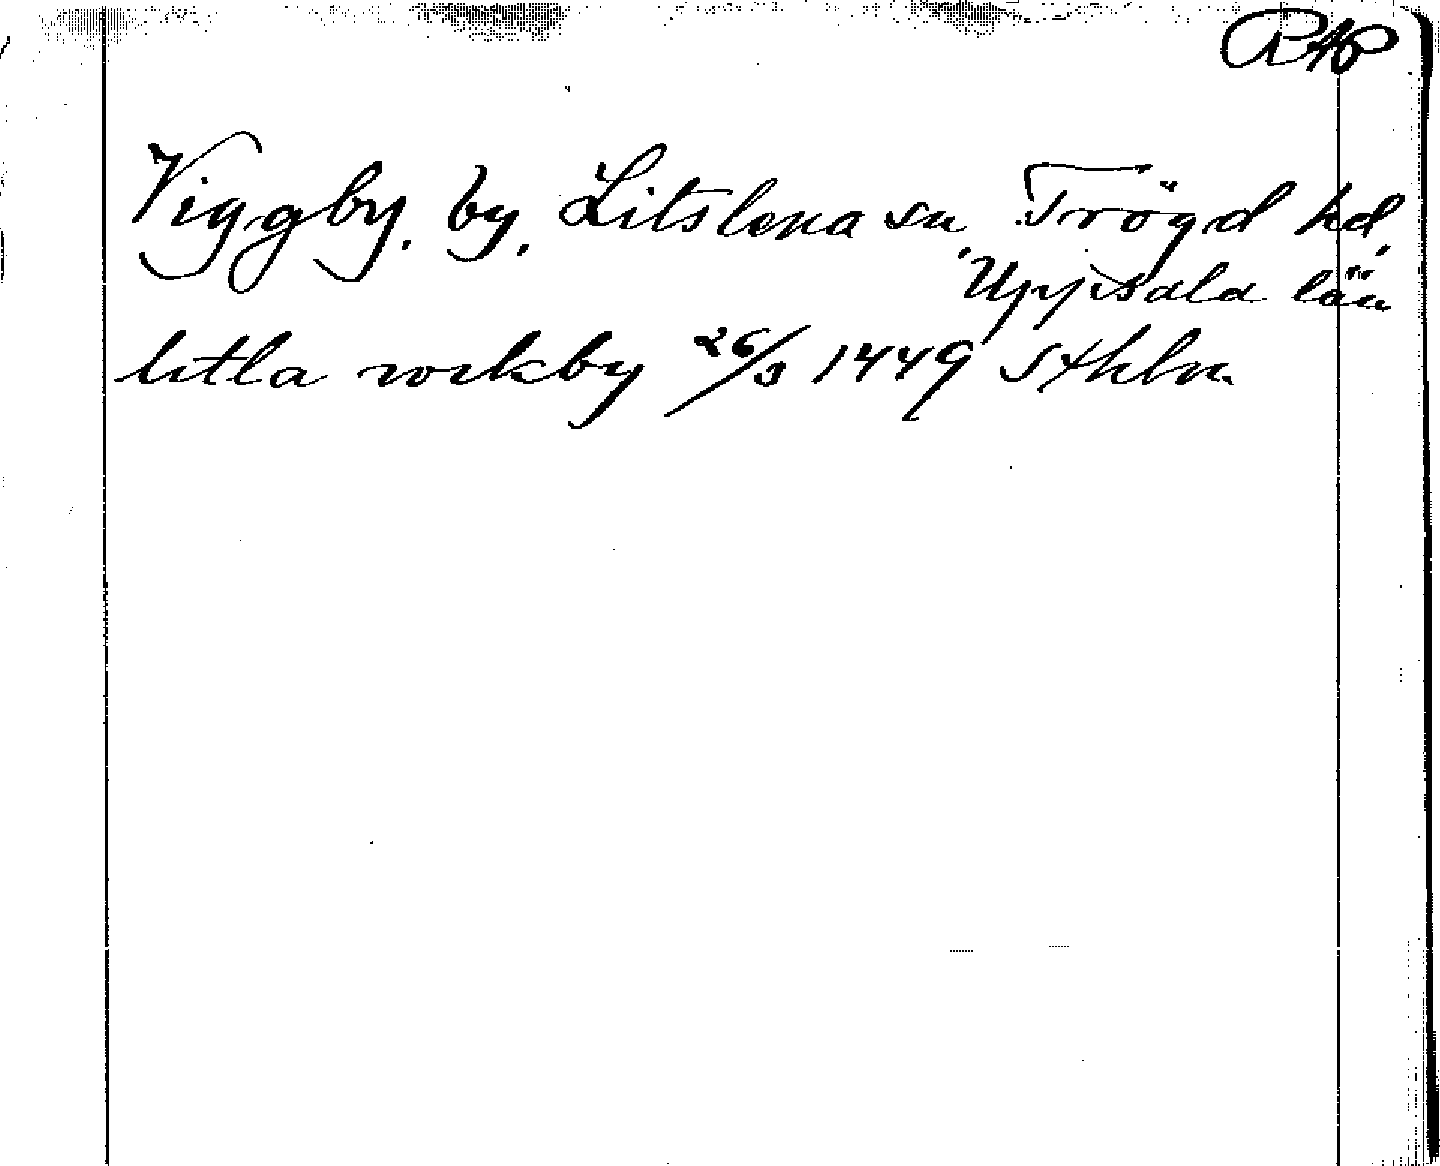 RAP
Viggby, by, Litslena sn, Trögd hd,
Uppsala län
litla wikby 26/3 1449 Sthlm.